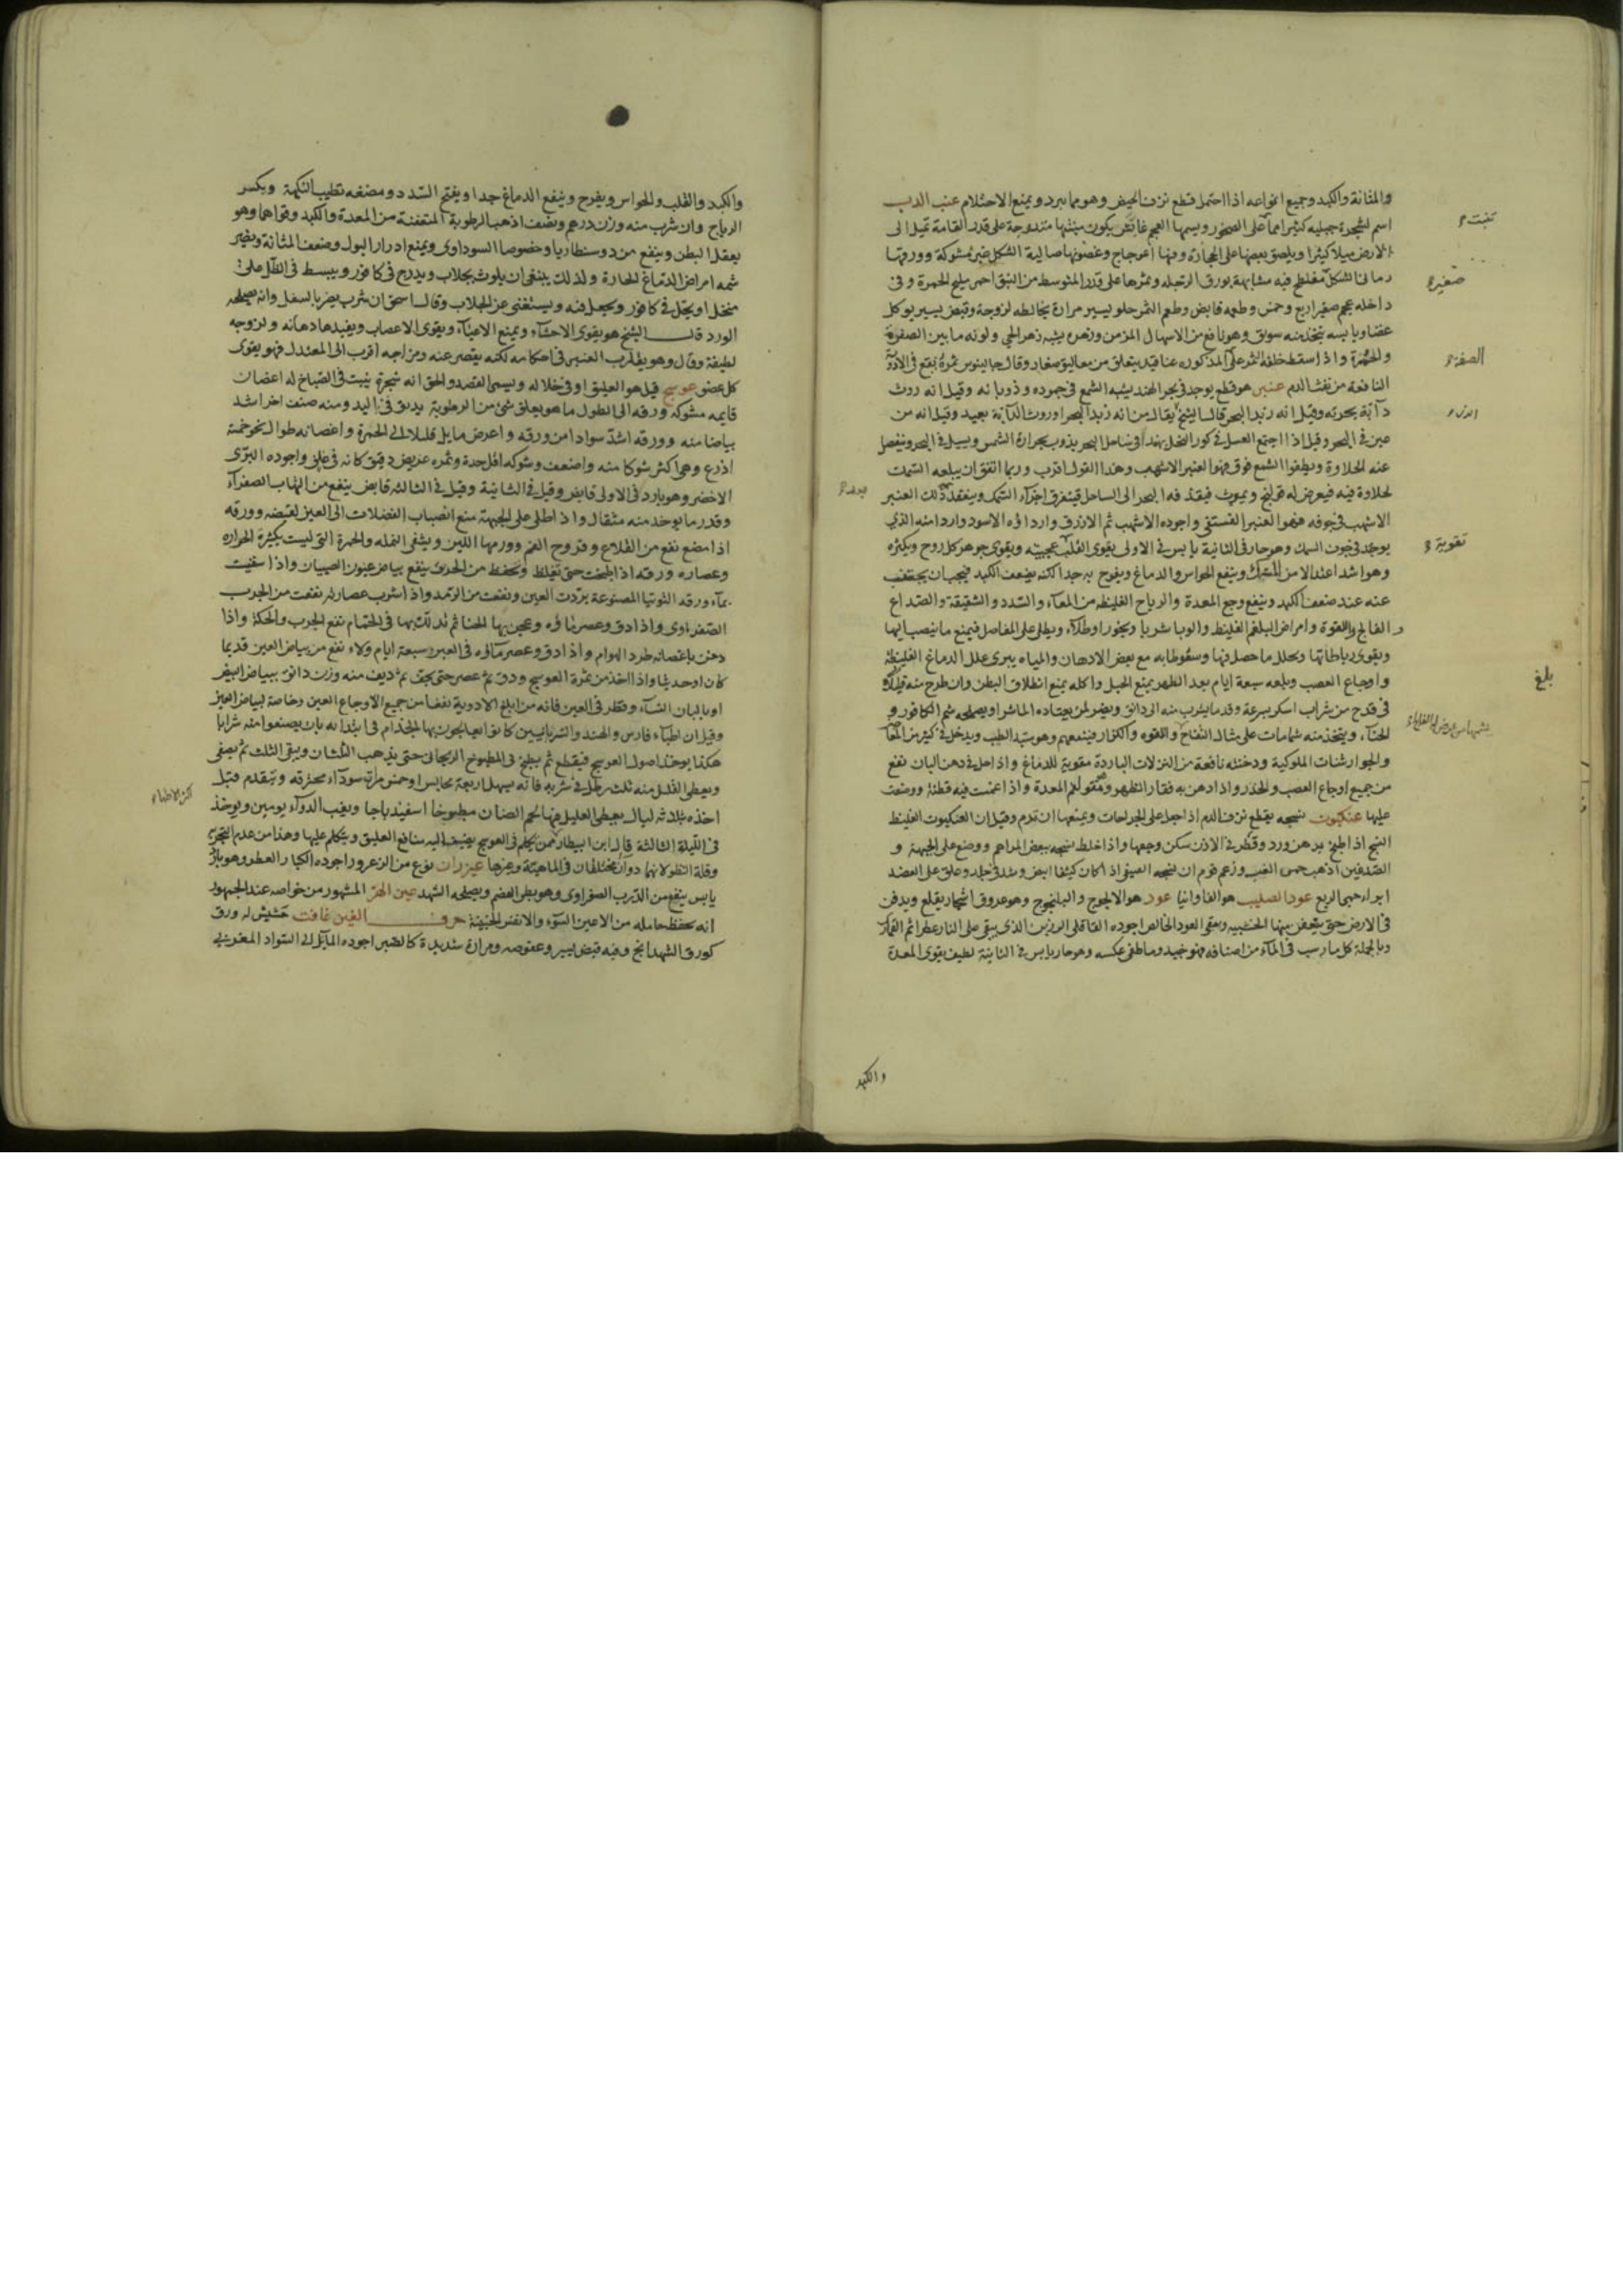 والمثانة والكبد وجميع انواعه اذا احتمل قطع نزف الحيض وهو مما يبرد ويمنع الاحتلام عنب الدب
اسم لشجرة جبليه كثيرا ما على الصخور ويسميها العجم يكون منبتها متدوحة على قدر القامة تميل الى
الارض ميلا كثيرا ويلصق بعضها على الحجارة وفيها اعوجاج وغضونها صالبة الشكل غير مشوكة وورقها
رمانى الشكل فيه مشابهة بورق الرجله وثمرها على قدر المتوسط من النبق احمر مليح الحمرة وفى
داخله عجم صغير اربع وخمس وطعمه قابض وطعم الثمر حلو بيسير مرارة يخالطه لزوجة وقبض يسير يوكل
غضا ويابسه يتخذ منه سويق وهو نافع من الاسهال المزمن وزهره يشبه زهر ولونه ما بين الصفرة
والحمرة واذا سقط خلفه الثمر على المذكوره عناقيد يتعلق من معاليق صغار وقال جالينوس ثمرة يقع فى الادوية
النافعة من نفث الدم عنبر هو قطع يوجد فى بحر الهند يشبه الشمع فى جموده وذوبانه وقيل انه روث
دآبة بحرية وقيل انه زبد البحر قال الشيخ يقال من انه زبد البحر او روث الدآبة بعيد وقيل انه من
عين فى البحر وقيل اذا اجتمع العسل فى كور النحل بهند فى ساحل البحر يذوب بحرارة الشمس ويسيل فى البحر وينفصل
عنه الحلاوة ويطفوا الشمع فوق فهو العنبر الاشهب وهذا القول اقرب وربما اتفق ان يبلعه السمك
لحلاوة فيه فيعرض له قولنج ويموت فيقذفه البحر الى الساحل فيتفرق اجزآء السمك وينعقد ذلك العنبر
الاشهب فى جوفه فهو العنبر الفستقى واجوده الاشهب ثم الازرق واردأوه الاسود واردا منه الذي
يوجد فى جوف السمك وهو حار فى الثانية يابس فى الاولى يقوى القلب عجيبة ويقوى جوهر كل روح ويكثره
وهو اشد اعتدالا من المسك وينفع الحواس والدماغ ويفرح به جدا لكنه يضعف الكبد فيجب ان يجتنب
عنه عند ضعف الكبد وينفع وجع المعدة والرياح الغليظه من المعآء والسدد والشقيقة والصداع
و الفالج واللقوة وامراض البلغم الغليظ والوبا شربا وبخورا وطلآء ويطلى على المفاصل فيمنع ما ينصب اليها
ويقوى رباطاتها ويحلل ما حصل فيها وسعوطا به مع بعض الادهان والمياه يبرى علل الدماغ الغليظة
واوجاع العصب وبلعه سبعة ايام بعد الطهر يمنع الحبل واكله يمنع انطلاق البطن وان طرح منه قليل
فى قدح من شراب اسكر بسرعة وقدر ما يشرب منه الى دانق ويضر لمن يعتاده الماشرا ويصلحه شم الكافور و
الحنآء ويتخذ منه شمامات على مثال التفاح واللقوه والكزاز فينفعهم وهو سيد الطيب ويدخل فى كثير من المعاجين
والجوارشنات الملوكية ودخنته نافعة من النزلات الباردة مقوية للدماغ واذا حل فى دهن البان نفع
من جميع اوجاع العصب والخدر واذا دهن به فقار الظهر ومقو لفم المعدة واذا غمست فيه قطنة ووضعت
عليها عنكبوت نسجه يقطع نزف الدم اذا جعل على الجراحات ويمنعها ان تورم وقيل ان العنكبوت الغليظ
النسج اذا طبخ بدهن ورد وقطر فى الاذن سكن وجعها واذا خلط نسجه ببعض المراهم ووضع على الجبهة و
الصدغين اذهب حمى الغب وزعم قوم ان نسجه الصيفى اذا كان كثيفا ابيض وشد فى جلد وعلق على العضد
ابرا حمى الربع عود الصليب هو الفاوانيا عود هو الالنجوج واليلنجوج وهو عروق اشجار يقلع ويدفن
فى الارض حتى يتعفن منها الخشبيه ويبقى العود الخالص اجوده القاقلى الرزين الذى يبقى على النار عطرا ثم القمارى
وبالجملة كل ما رسب فى المآء من اصنافه فهو جيد وما طفى عكسه وهو حار يابس فى الثانية لطيف يقوى المعدة
والكبد
تنبت
صغيرة
الصفرة
تقوية
بلغ
والكبد والقلب والحواس ويفرح وينفع الدماغ جدا ويفتح السدد ومضغه تطيب النكهة ويكسر
الرياح وان شرب منه وزن درهم ونصف اذهب الرطوبة المتعفنة من المعدة والكبد وقواهما وهو
يعقل البطن وينفع من دوسنطاريا وخصوصا السوداوى ويمنع ادرار البول وضعف المثانة ويضر
شمه امراض الدماغ الحارة ولذلك ينبغى ان يلوث بجلاب ويدرج فى كافور ويبسط فى الظل على
منخل او يحل فى كافور ويجعل فيه ويستغنى عن الجلاب وقال اسحق ان شرب يضر بالسفل وانه يصلحه
الورد قال الشيخ هو يقوى الاحشآء ويمنع الاعيآء ويقوى الاعصاب ويفيدها دهانه ولزوجه
لطيفة وقال وهو يقارب العنبر فى احكامه لكنه يقصر عنه ومزاجه اقرب الى المعتدل فهو يقوى
كل عضو عوسج قيل هو العليق او فى خلاله ويسمى الغصد والحق انه شجرة ينبت فى السباخ له اغصان
قايمه مشوكه ورقه الى الطول ما هو يعلق شئ من الرطوبة يدبق فى اليد ومنه صنف اخر اشد
بياضا منه وورقه اشد سوادا من ورقه واعرض مايل قليلا الى الحمرة واغصانه طوال نحو خمسة
اذرع وهى اكثر شوكا منه واضعف وشوكه اقل حدة وثمره عريض دقيق كانه فى غلف واجوده البرى
الاخضر وهو بارد فى الاولى قابض وقيل فى الثانية وقيل فى الثالثه قابض ينفع من التهاب الصفرآء
وقدر ما يوخذ منه مثقال واذا طلى على الجبهة منع انصباب الفضلات الى العين لقبضه وورقه
اذا مضغ نفع من القلاع وقروح الفم وورمها اللين ويشفى النمله والحمرة التى ليست بكثيرة الحراره
وعصاره ورقه اذا طبخت حتى تغلظ وتحفظ من الحرق ينفع بياض عيون الصبيان واذا سقيت
بمآء ورقه التوتيا المصنوعة بردت العين ونفعت من الرمد واذا شرب عصارته نفعت من الجرب
الصفراوى واذا دق وعصر مآؤه وعجن بها الحنا ثم تدلك بها فى الحمام نفع الجرب والحكة واذا
دخن باغصانه طرد الهوام واذا دق وعصر مآؤه فى العين سبعة ايام ولاء نفع من بياض العين قديما
كان او حديثا واذا اخذ من ثمرة العوسج ودق ثم عصر حتى يجف ثم ديف منه وزن دانق ببياض البيض
او بالبان النسآء وقطر فى العين فانه من ابلغ الادوية نفعا من جميع الاوجاع العين وخاصة لبياض العين
وقيل ان اطبآء فارس والهند والسريانيين كانوا يعالجون بها الجذام فى ابتدائه بان يصنعوا منه شرابا
هكذا يوخذ اصول العوسج فيقطع ثم يطبخ فى المطبوخ الريحانى حتى يذهب الثلثان ويبقى الثلث ثم يصفى
ويعطى العليل منه ثلث رطل فى شربه فانه يسهل اربعة مجالس او خمس مرات سودآء محترقه ويتقدم قبل
اخذه بثلاثه ليال بعطى العليل فيها لحم الضان مطبوخا اسفيذباجا ويغب الدوآء يومين ويوخذ
فى الليلة الثالثة قال ابن البيطار فمن تكلم فى العوسج يضيف اليه منافع العليق ويتكلم عليها وهذا من عدم التحرير
وقلة النظر لانهما دوآن مختلفان فى الماهية وغيرها عيزران نوع من الزعرور اجوده الكبار العطر وهو بارد
يابس ينفع من الذرب الصفراوى وهو بطى الهضم ويصلحه الشهد عين الهر المشهور من خواصه عند الجمهور
انه يحفظ حامله من الاعين السوء والانفس الخبيثة حرف الغين غافت حشيش له ورق
كورق الشهدانج وفيه قبض يسير وعفوصه ومرارة شديدة كالصبر اجوده المآيل الى السواد المغربى
اكثر الاطباء